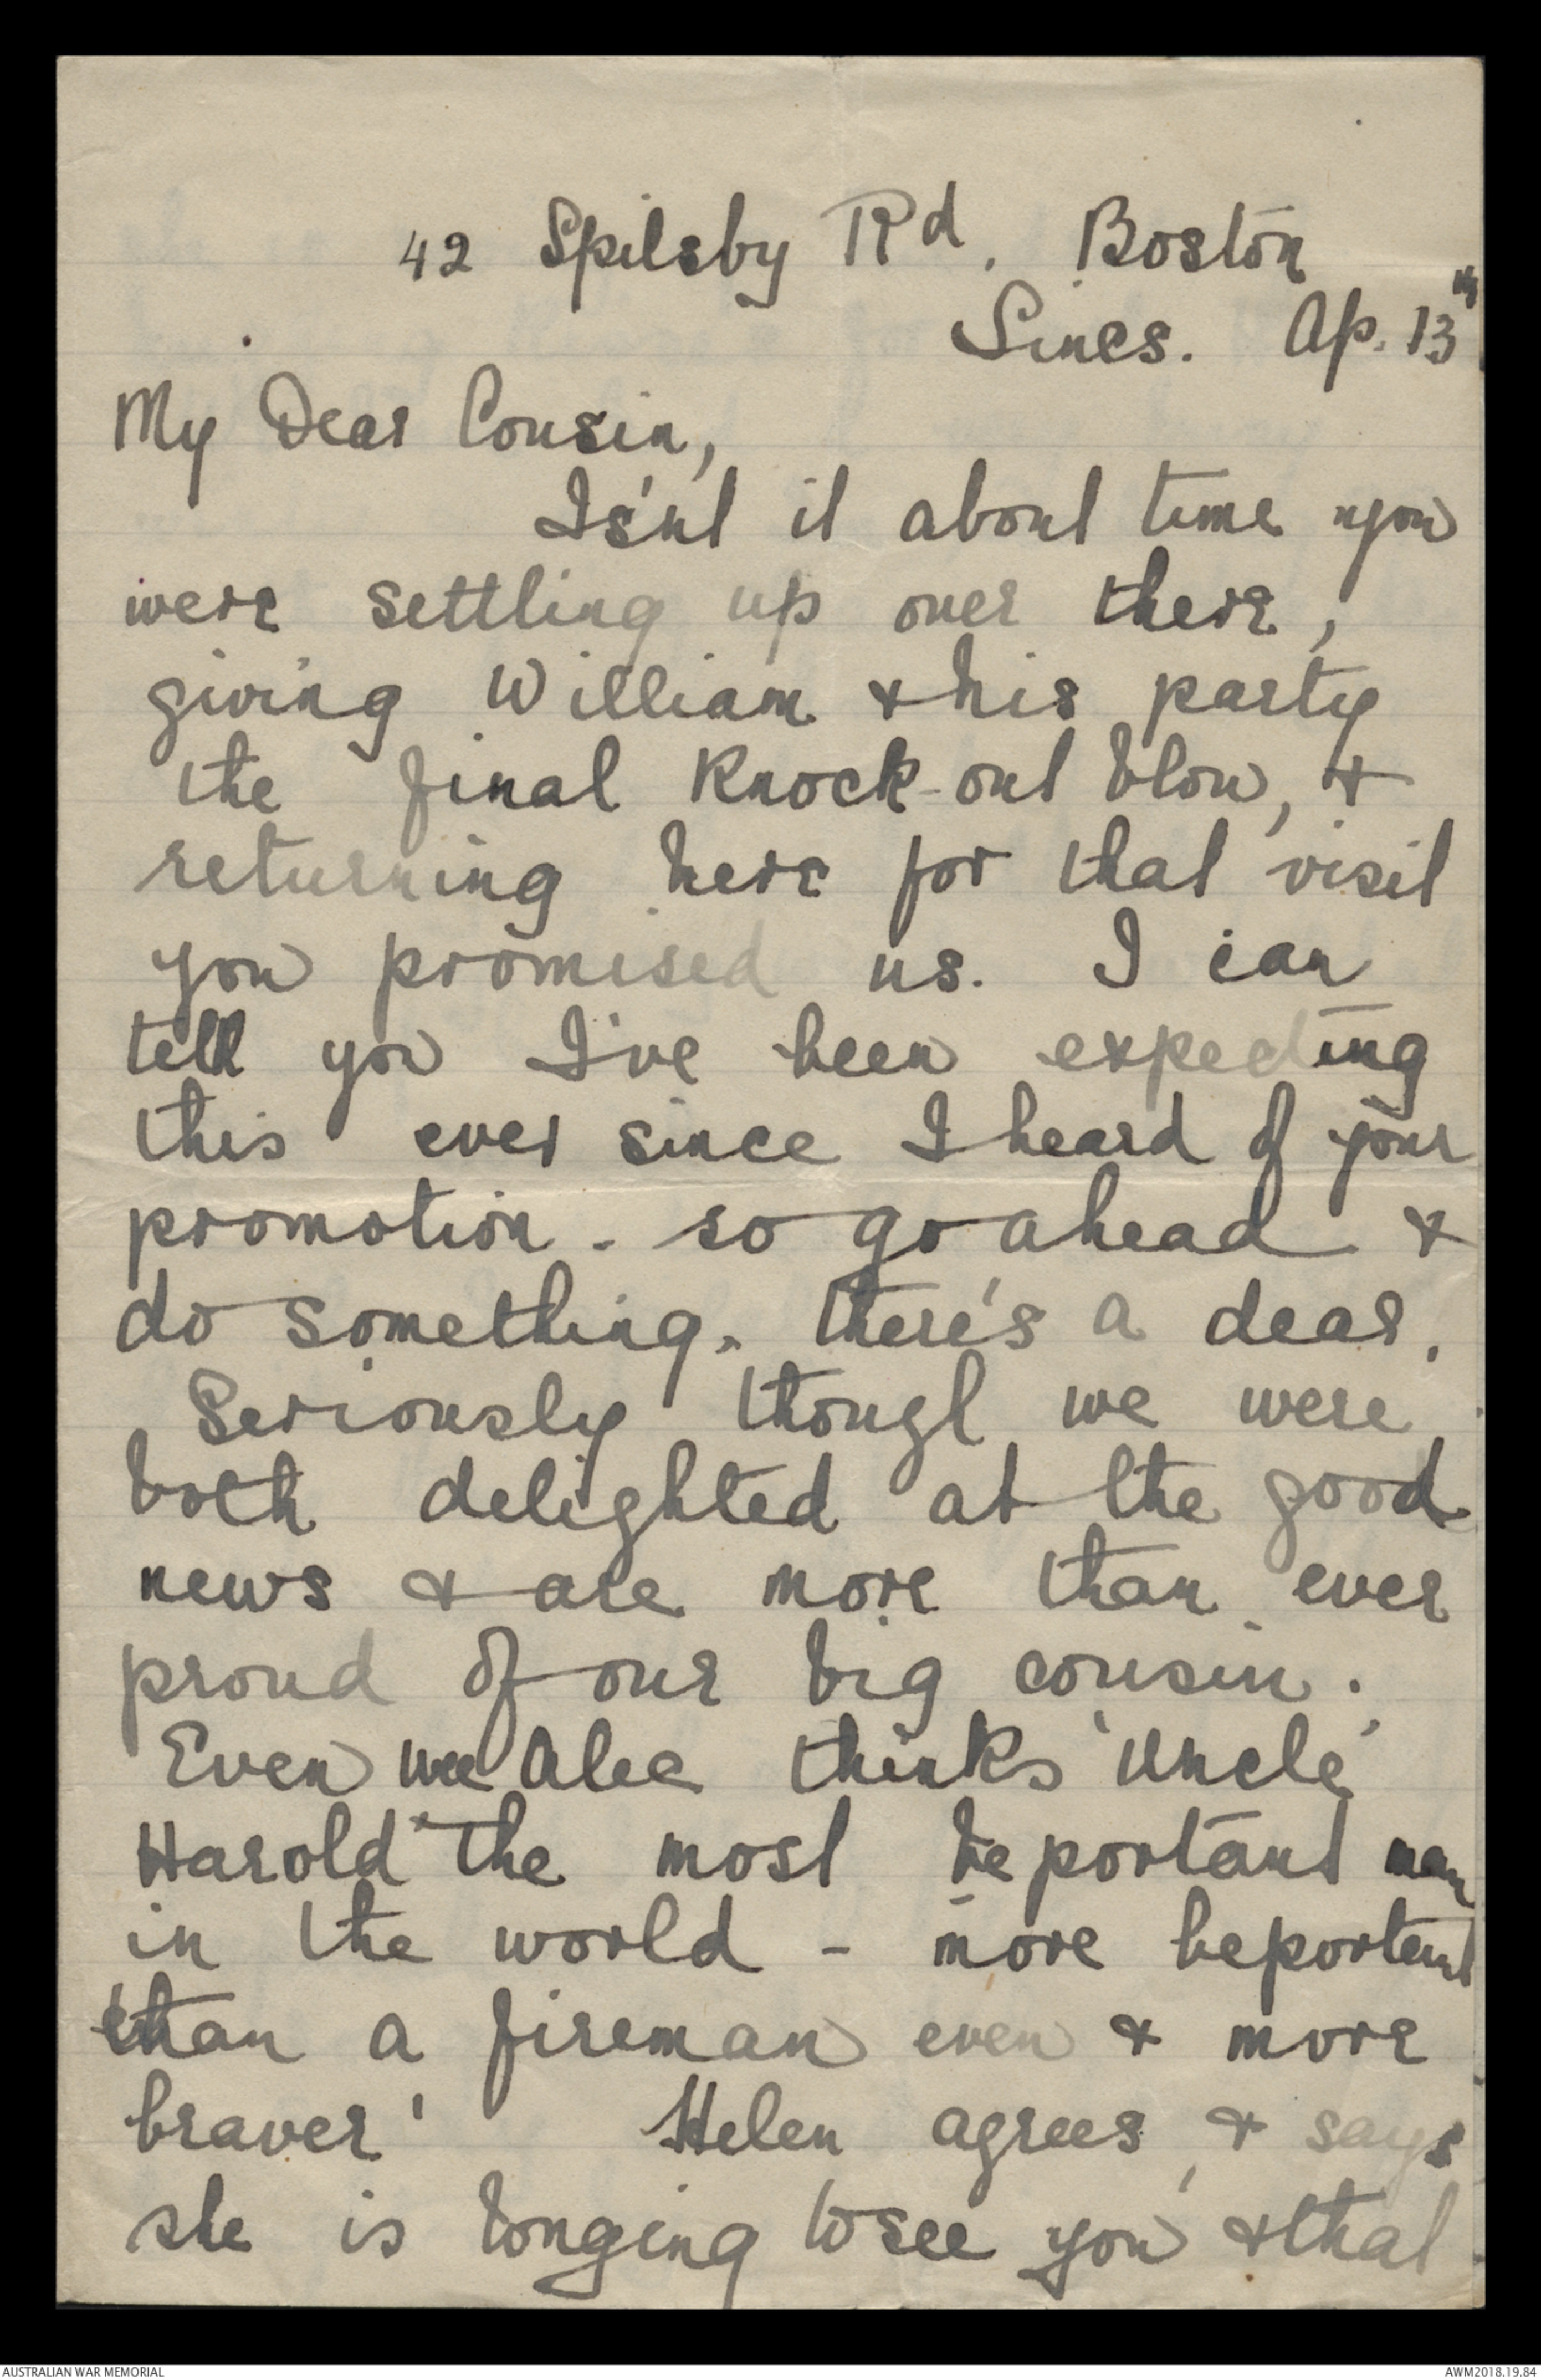 42 Spilsby Rd. Boston
Lincs. Ap. 13th
My Dear Cousin,
Is'nt it about time you
were settling up over there,
giving William & his party
the final knock-out blow, &
returning here for that visit
you promised us. I can
tell you I've been expecting
this ever since I heard of your
promotion - so go ahead &
do something, there's a dear.
Seriously though we were
both delighted at the good
news & are more than ever
proud of our big cousin.
Even wee Alec thinks 'Uncle
Harold' the most beportant man
in the world - more beportant
than a fireman even & more
braver! Helen agrees, & says
she is longing to see you, & that
AUSTRALIAN WAR MEMORIAL
AWM2018.19.84